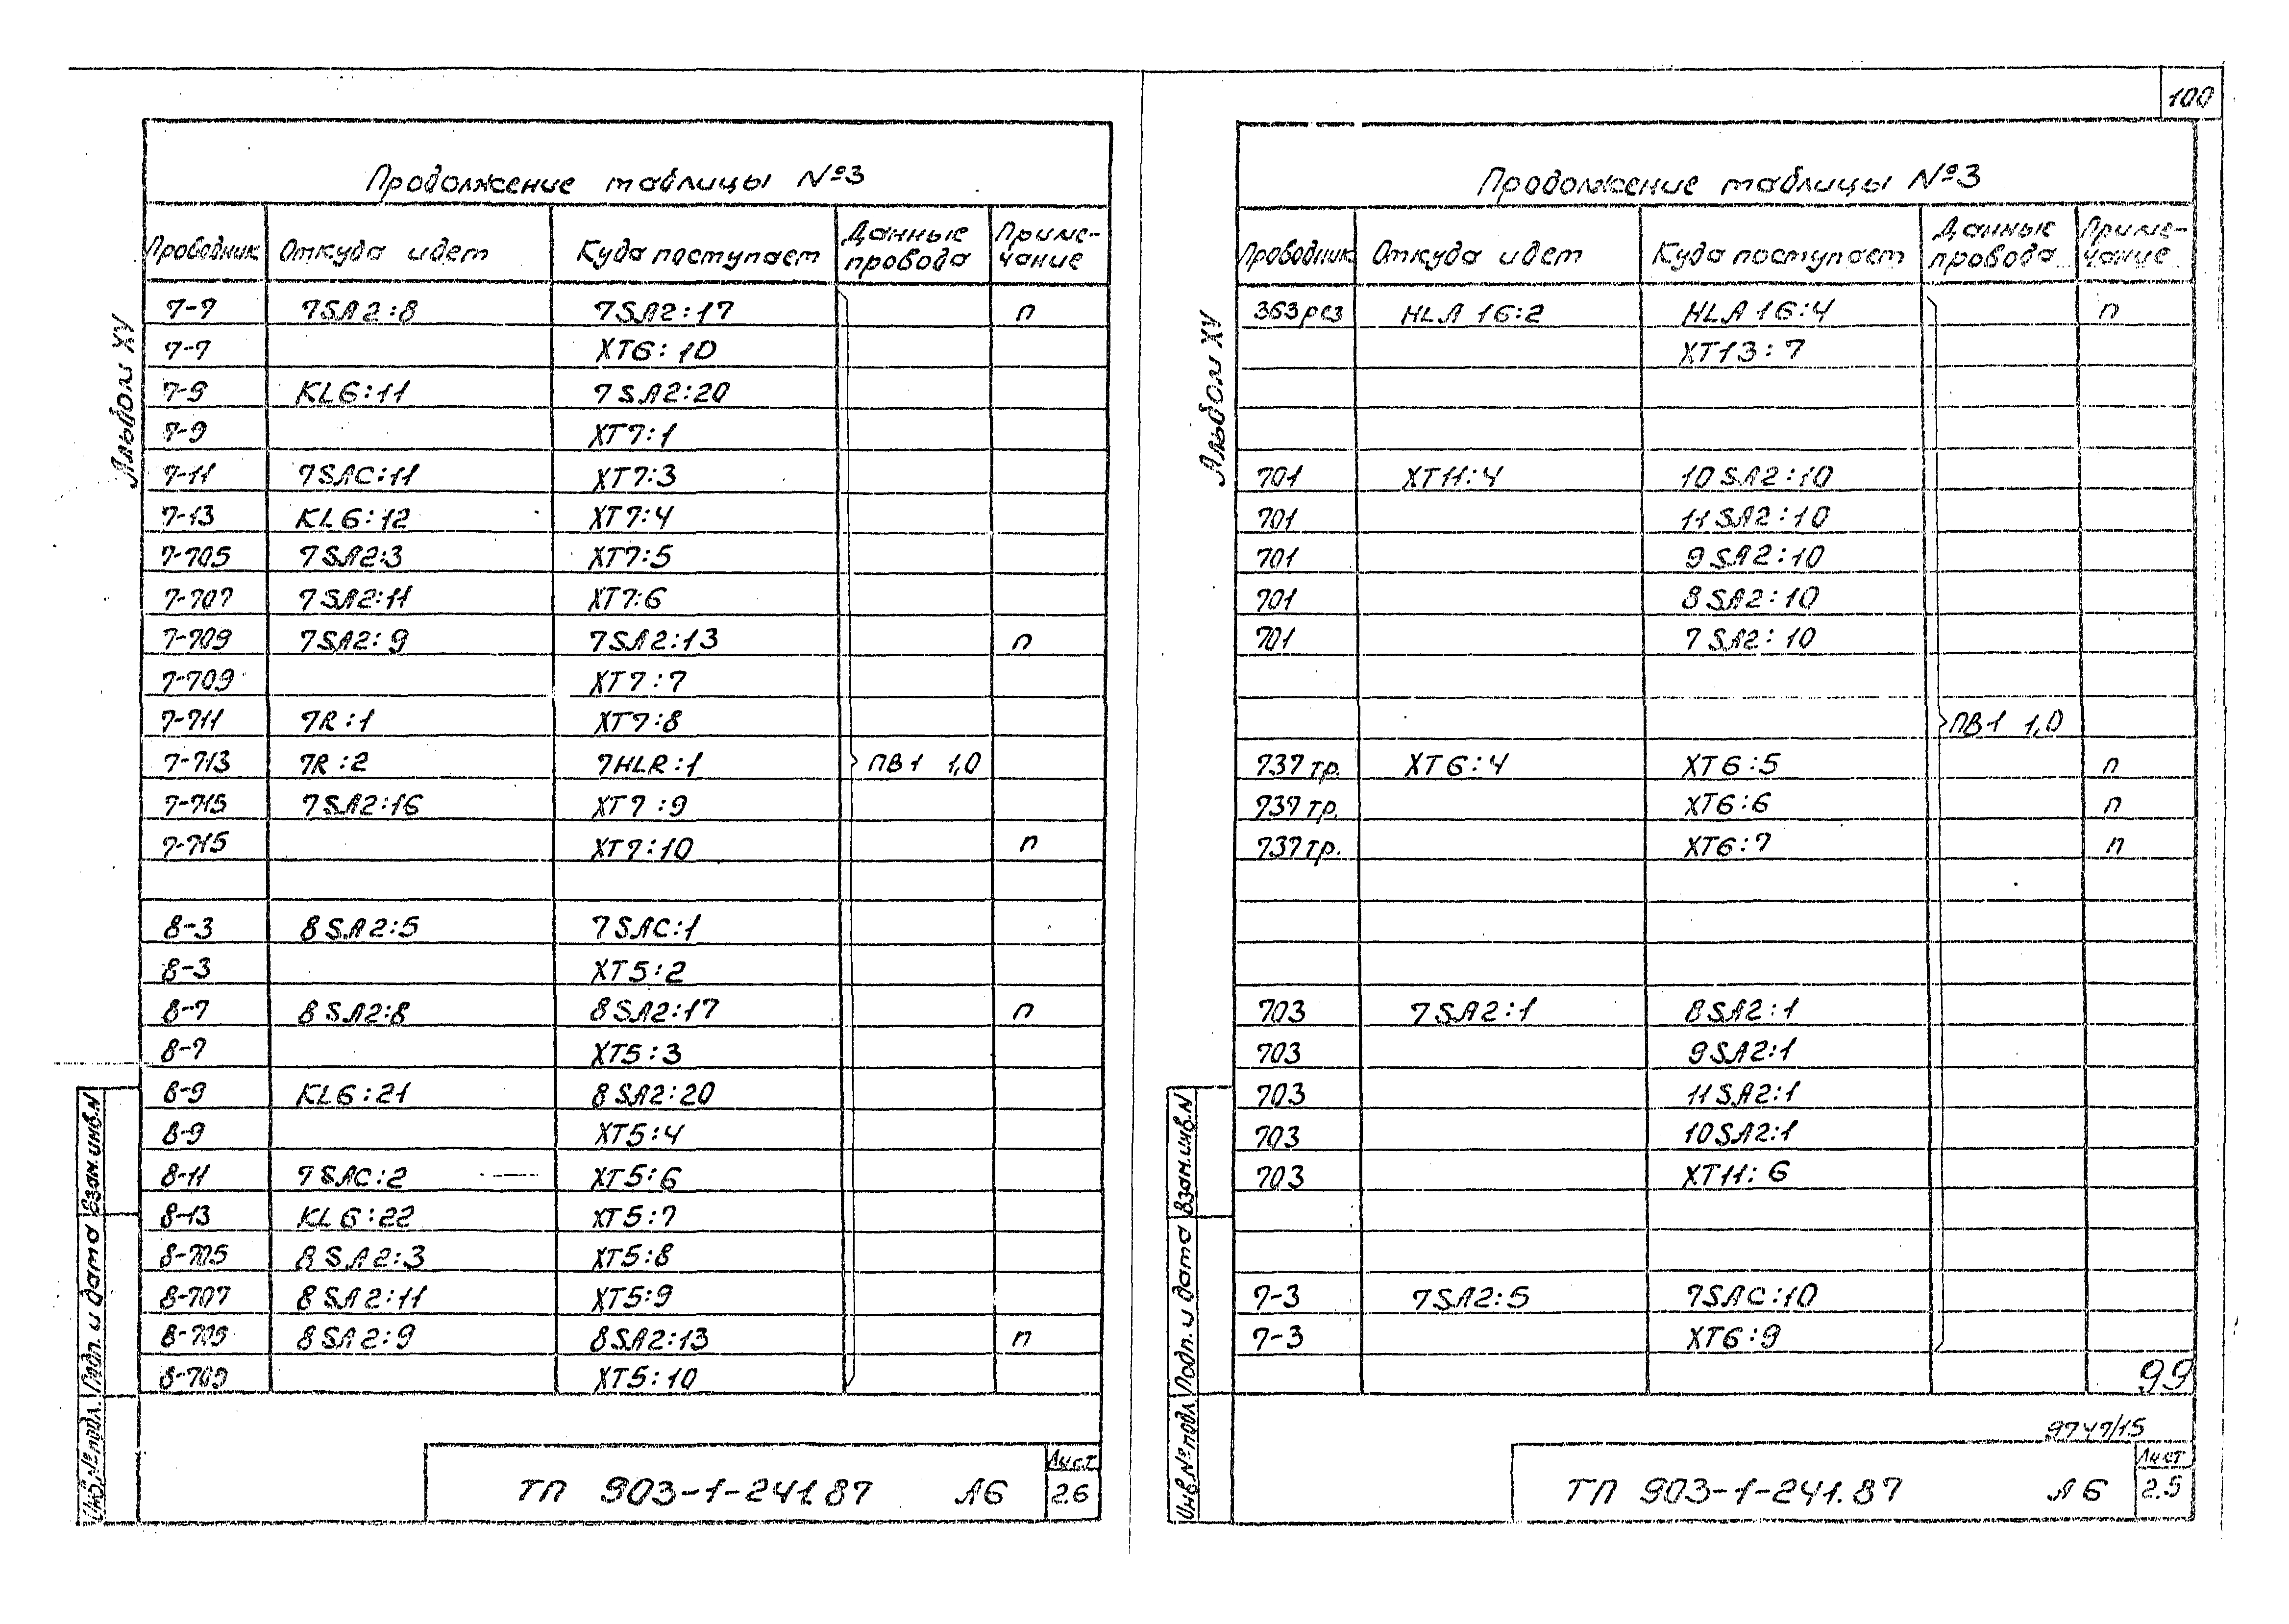 100
Альбом XV
Продолжение таблицы №3
Проводник Откуда идет Куда поступает Данные провода Приме-чание
7-7 7SA2:8 7SA2:17 п
7-7 XT6:10
7-9 KL6:11 7SA2:20
7-9 XT7:1
7-11 7SAC:11 XT7:3
7-13 KL6:12 XT7:4
7-705 7SA2:3 XT7:5
7-707 7SA2:11 XT7:6
7-709 7SA2:9 7SA2:13 п
7-709 XT7:7
7-711 7R:1 XT7:8
7-713 7R:2 7HLR:1 ПВ1 1,0
7-715 7SA2:16 XT7:9
7-715 XT7:10 п
8-3 8SA2:5 7SAC:1
8-3 XT5:2
8-7 8SA2:8 8SA2:17 п
8-7 XT5:3
8-9 KL6:21 8SA2:20
8-9 XT5:4
8-11 7SAC:2 XT5:6
8-13 KL6:22 XT5:7
8-705 8SA2:3 XT5:8
8-707 8SA2:11 XT5:9
8-709 8SA2:9 8SA2:13 п
8-709 XT5:10
Инв.№ подл. Подп. и дата Взам.инв.N
ТП 903-1-241.87 А6 Лист 2.6
Альбом XV
Продолжение таблицы №3
Проводник Откуда идет Куда поступает Данные провода Приме-чание
363рез HLA16:2 HLA16:4 п
XT13:7
701 XT11:4 10SA2:10
701 11SA2:10
701 9SA2:10
701 8SA2:10
701 7SA2:10
ПВ1 1,0
737тр. XT6:4 XT6:5 п
737тр. XT6:6 п
737тр. XT6:7 п
703 7SA2:1 8SA2:1
703 9SA2:1
703 11SA2:1
703 10SA2:1
703 XT11:6
7-3 7SA2:5 7SAC:10
7-3 XT6:9
99
Инв.№ подл. Подп. и дата Взам.инв.N
9747/15
ТП 903-1-241.87 А6 Лист 2.5